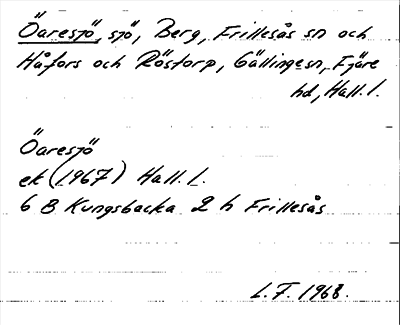 Öaresjö, sjö, Berg, Frillesås sn och
Håfors och Röstorp, Gällinge sn, Fjäre
hd, Hall. l.
Öaresjö
ek (1967) Hall. l.
6 B Kungsbacka 2 h Frillesås
L.F. 1968.